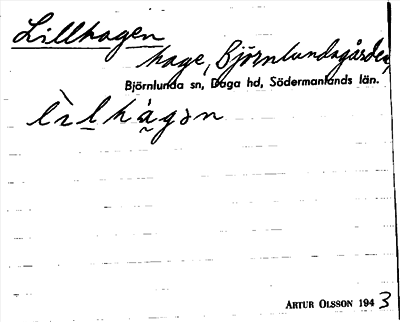 Lillhagen
hage, Björnlundagården,
Björnlunda sn, Daga hd, Södermanlands län.
lìl̠há̰gən
ARTUR OLSSON 1943